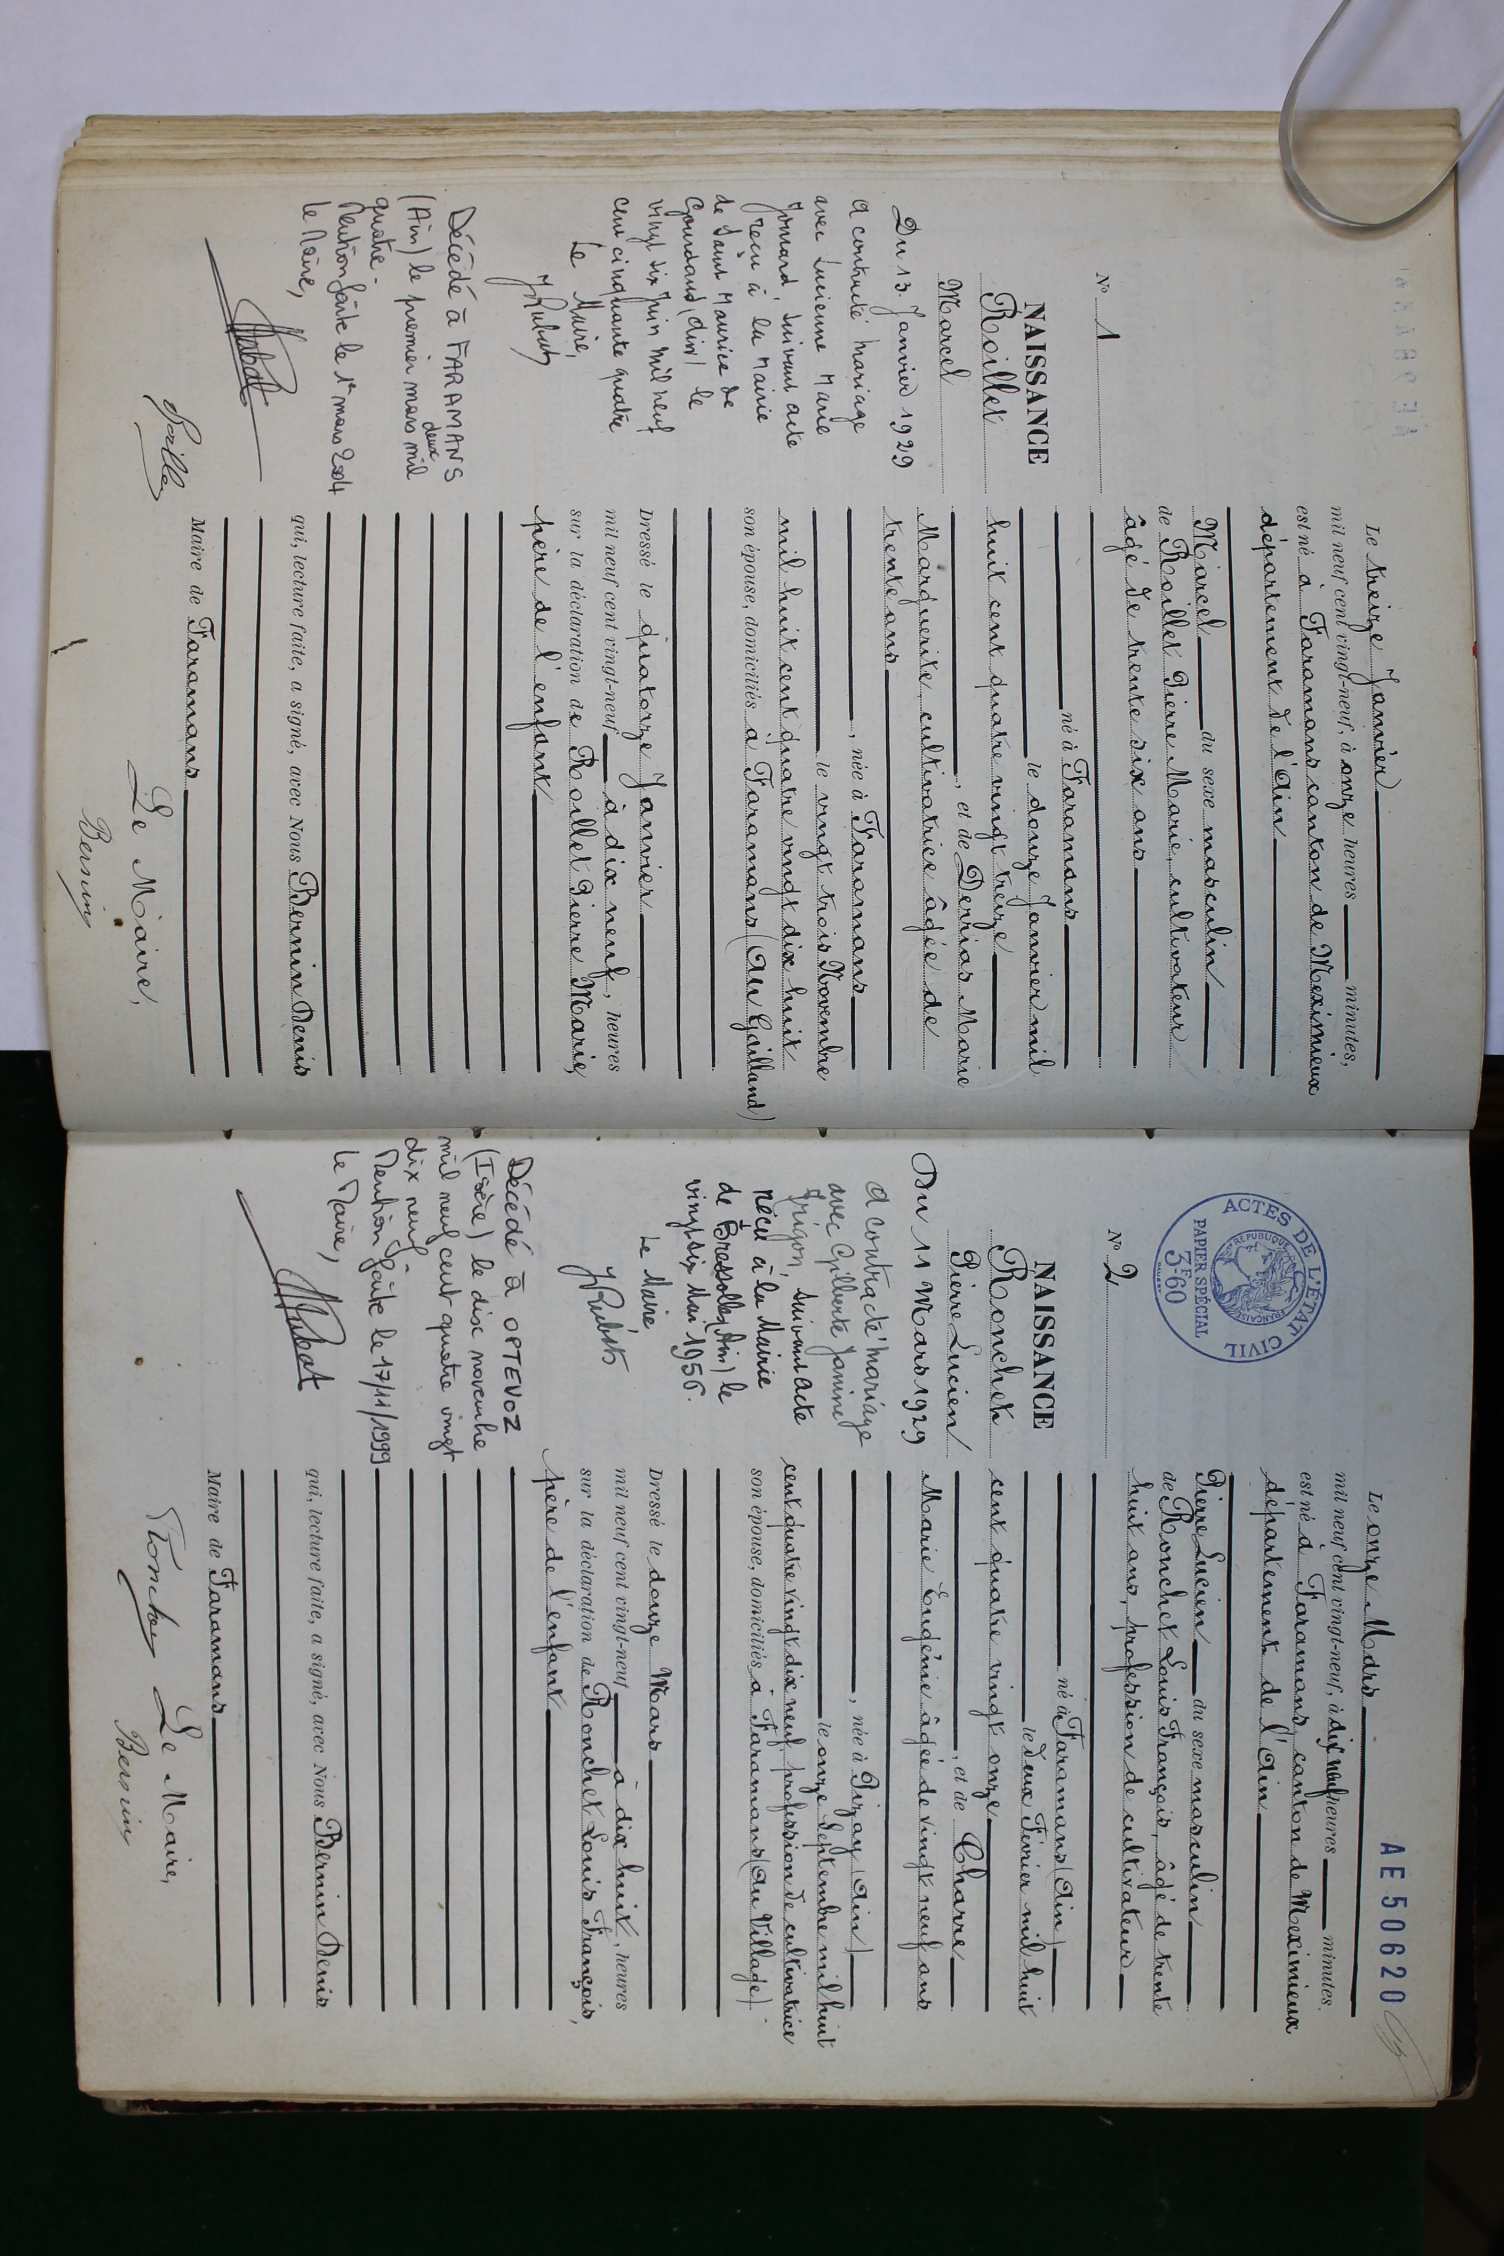 N° 1
NAISSANCE
Roillet
Marcel
Du 13 Janvier 1929
a contracté mariage
avec Lucienne Marie
suivant acte
reçu à la Mairie
de Saint Maurice de
Gourdans (Ain) le
vingt six Juin mil neuf
cent cinquante quatre
Le Maire,
Décédé à FARAMANS
(Ain) le premier mars deux mil
quatre.
Mention faite le 1er mars 2004
le Maire,
Le treize Janvier
mil neuf cent vingt-neuf, à onze heures minutes,
est né à Faramans canton de Meximieux
département de l'Ain
Marcel du sexe masculin
de Roillet Pierre Marie, cultivateur
âgé de trente six ans
né à Faramans
le douze Janvier mil
huit cent quatre vingt treize
, et de Derrias Marie
Marguerite cultivatrice âgée de
trente ans
, née à Faramans
le vingt trois Novembre
mil huit cent quatre vingt dix huit
son épouse, domiciliés à Faramans (au Gailland)
Dressé le quatorze Janvier
mil neuf cent vingt-neuf à dix neuf, heures
sur la déclaration de Roillet Pierre Marie,
père de l'enfant
qui, lecture faite, a signé, avec Nous Bernin Denis
Maire de Faramans
Roillet
Le Maire,
Bernin
ACTES DE L'ÉTAT CIVIL
RÉPUBLIQUE FRANÇAISE
PAPIER SPÉCIAL
3F60
AE 50620
N° 2
NAISSANCE
Ronchet
Pierre Lucien
Du 11 Mars 1929
a contracté mariage
avec Gilberte Janine
suivant acte
reçu à la Mairie
de Bressolles (Ain) le
vingt six Mai 1956.
Le Maire
Décédé à OPTEVOZ
(Isère) le dix novembre
mil neuf cent quatre vingt
dix neuf.
Mention faite le 17/11/1999
le Maire,
Le onze Mars
mil neuf cent vingt-neuf, à dix neuf heures minutes,
est né à Faramans, canton de Meximieux
département de l'Ain
Pierre Lucien du sexe masculin
de Ronchet Louis François, âgé de trente
huit ans, profession de cultivateur
né à Faramans (Ain)
le deux Février mil huit
cent quatre vingt onze
, et de Charre
Marie Eugénie âgée de vingt neuf ans
, née à Pizay (Ain)
le onze Septembre mil huit
cent quatre vingt dix neuf profession de cultivatrice
son épouse, domiciliés à Faramans (au Village)
Dressé le douze Mars
mil neuf cent vingt-neuf à dix huit, heures
sur la déclaration de Ronchet Louis François,
père de l'enfant
qui, lecture faite, a signé, avec Nous Bernin Denis
Maire de Faramans
Ronchet
Le Maire,
Bernin